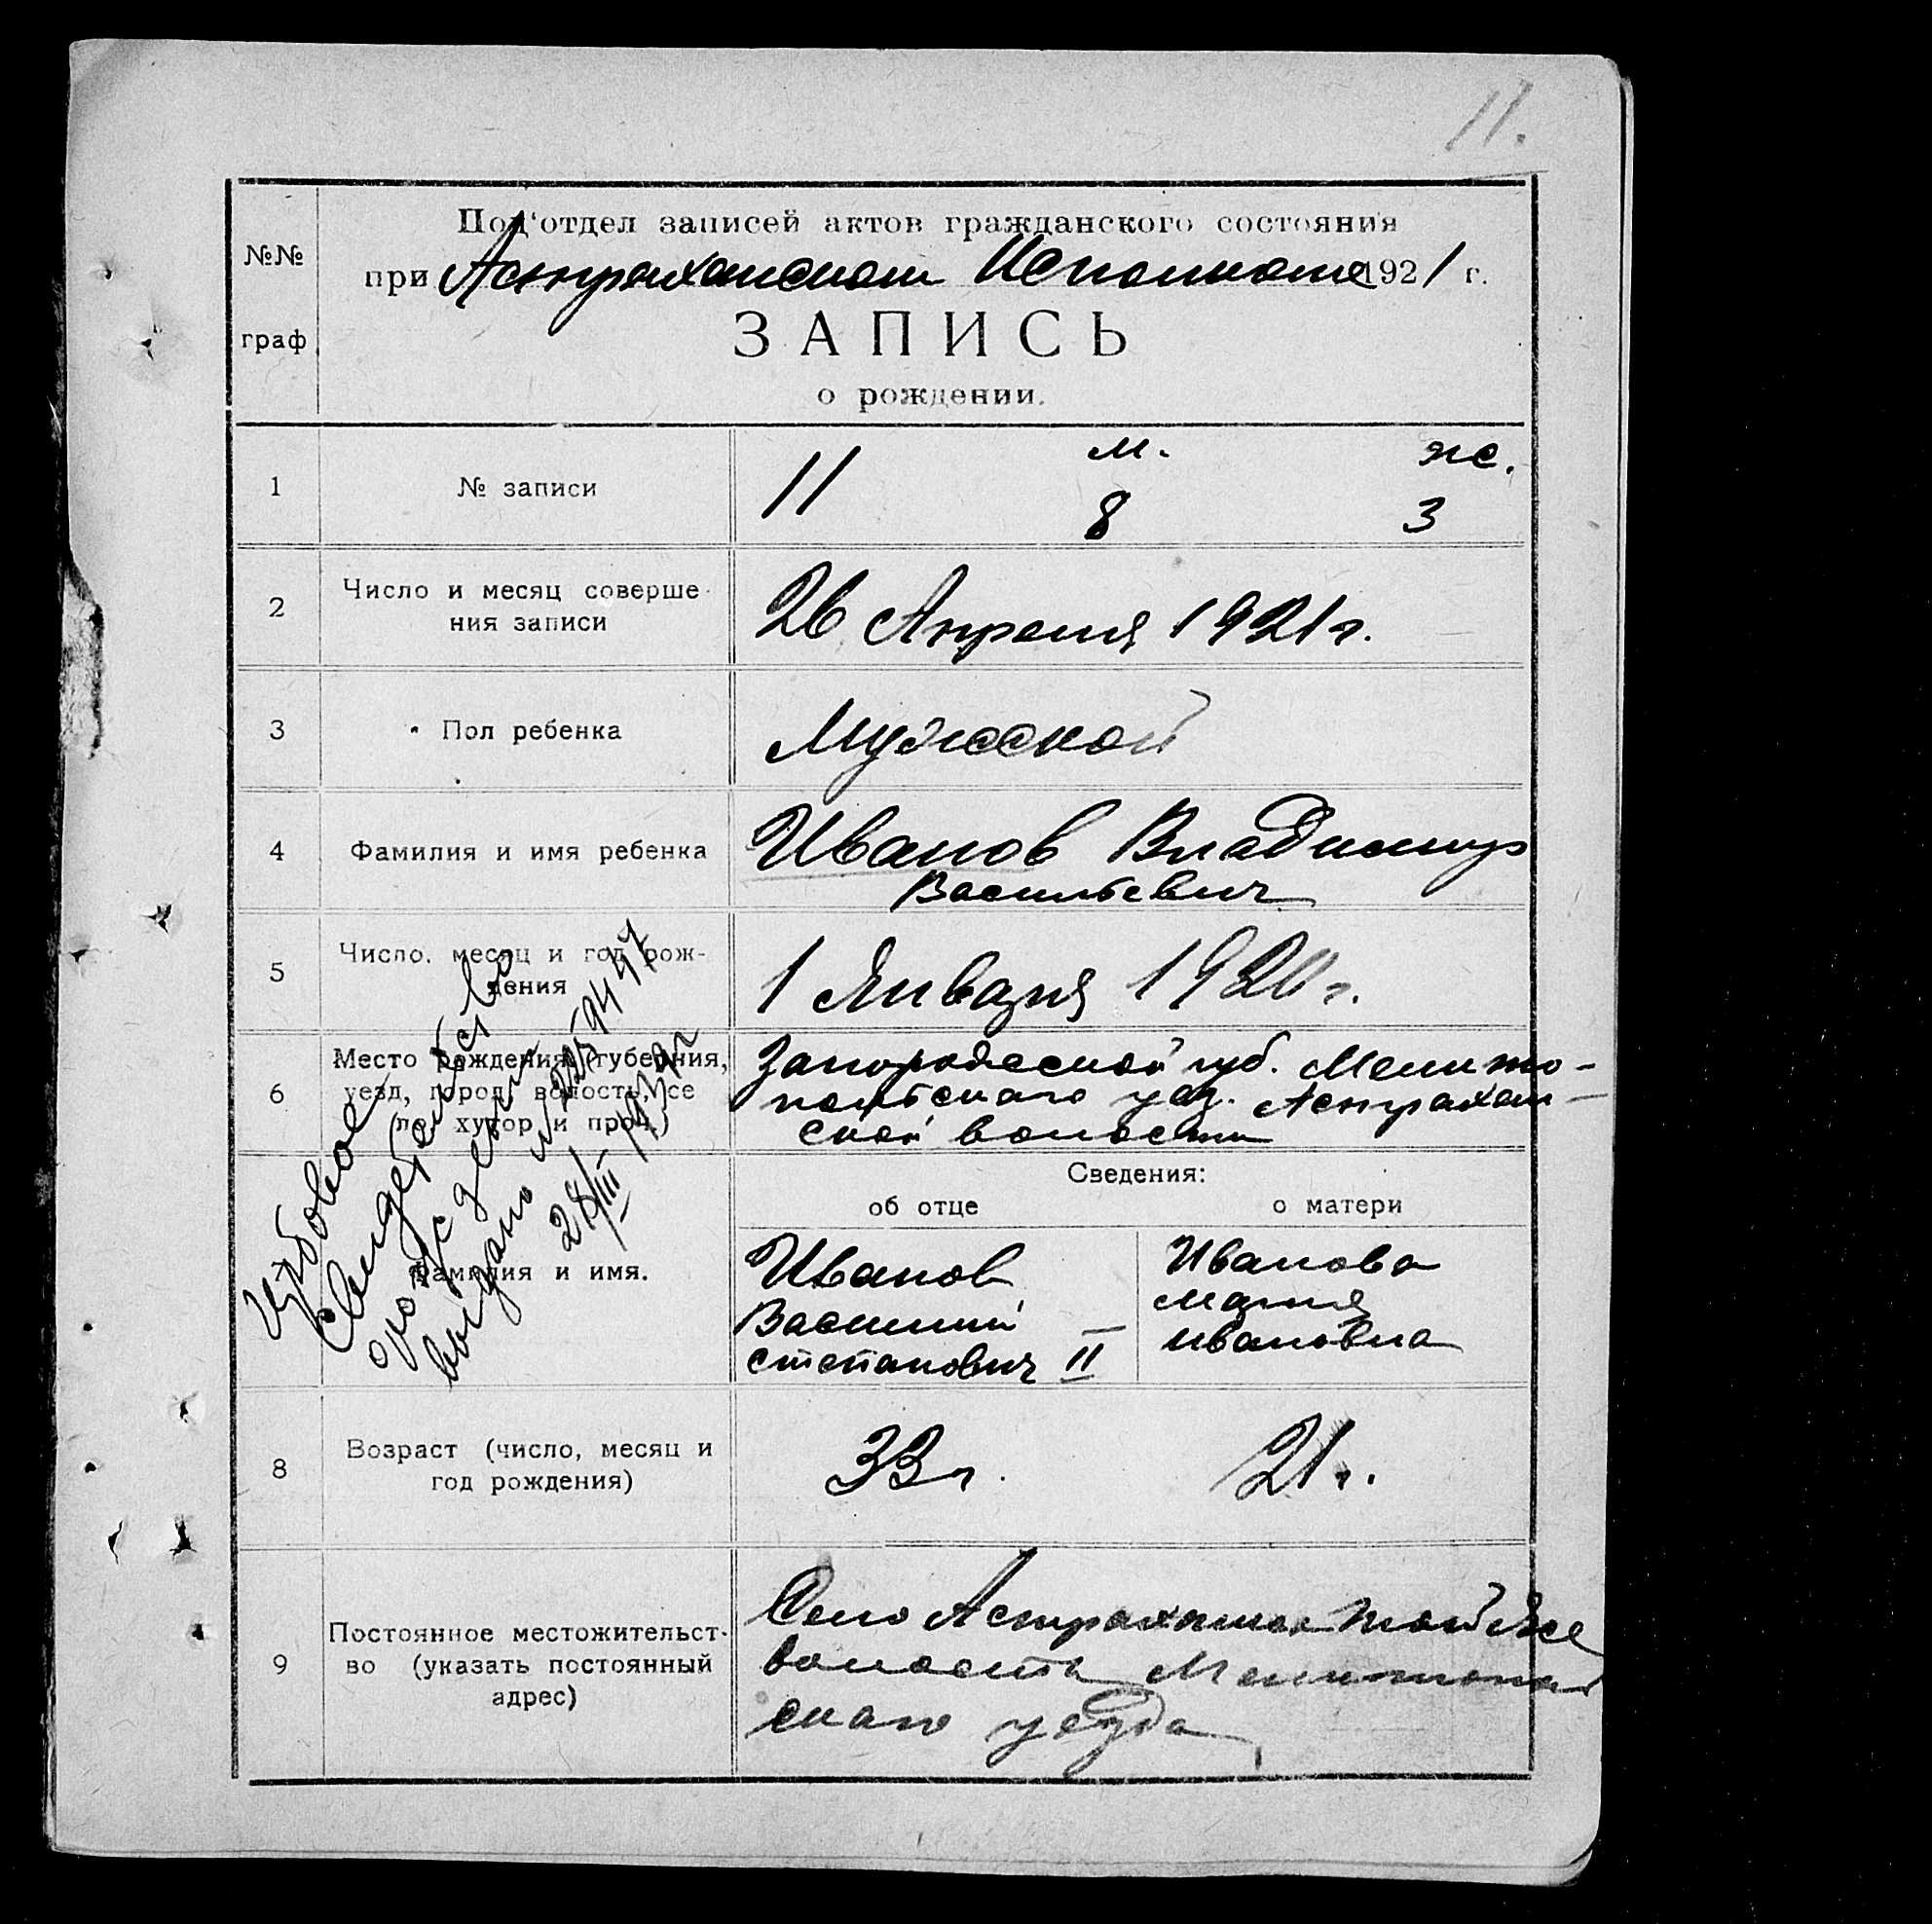 11.
Под‘отдел записей актов гражданского состояния
при Астраханском Исполкоме 1921 г.
№№
граф
ЗАПИСЬ
о рождении.
1 № записи 11 м. 8 ж. 3
2 Число и месяц соверше-
ния записи 26 Апреля 1921 г.
3 Пол ребенка Мужской
4 Фамилия и имя ребенка Иванов Владимир
Васильевич
5 Число, месяц и год рож-
дения 1 Января 1920 г.
6 Место рождения (губерния,
уезд, город, волость, се
ло, хутор и проч.
Запорожской губ. Мелито-
польского уез. Астрахан-
ской волости
Сведения:
об отце о матери
Фамилия и имя.
Иванов
Василий
Степанович II
Иванова
Мария
Ивановна
8 Возраст (число, месяц и
год рождения) 33 г. 21 г.
9 Постоянное местожительст-
во (указать постоянный
адрес)
Село Астраханка той же
волости Мелитополь
ского уезда
свидетельство
о рождении
выдано №
28/III